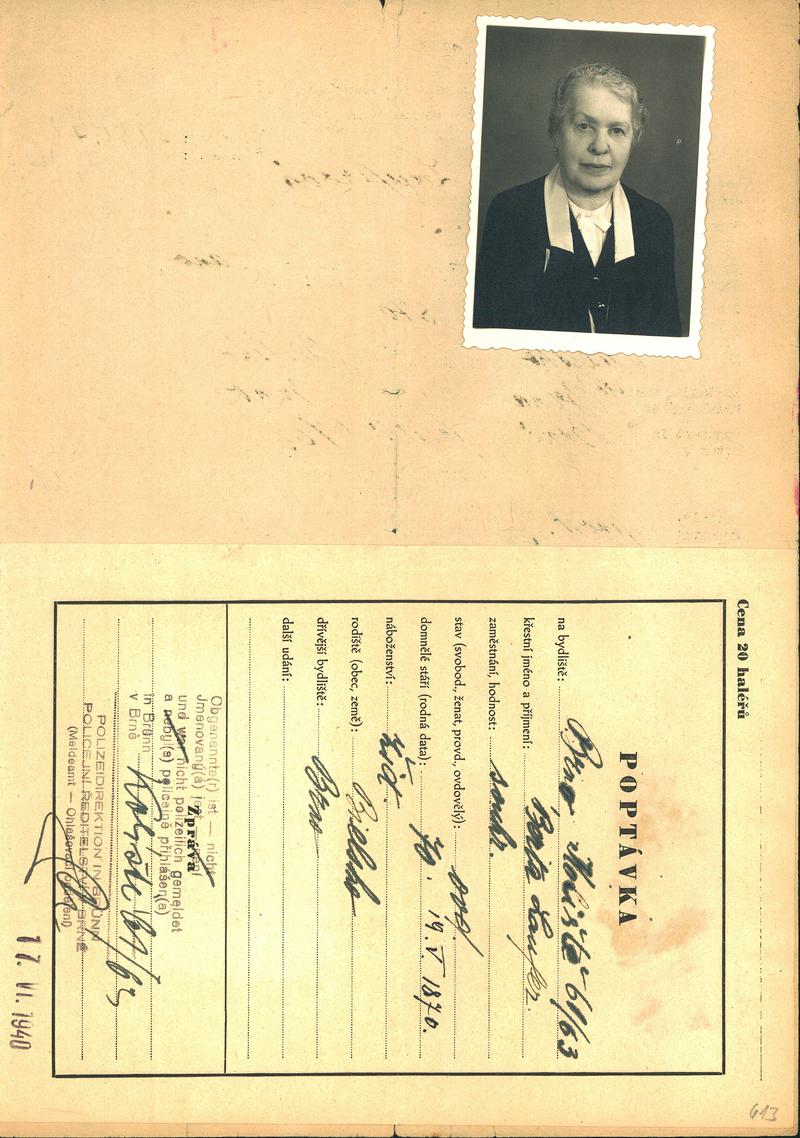 Cena 20 haléřů
POPTÁVKA
na bydliště: Brno Koliště 61/63
křestní jméno a příjmení: Berta
zaměstnání, hodnost: soukr.
stav (svobod., ženat, provd., ovdovělý): ovd.
domnělé stáří (rodná data): 70. 19. V. 1870.
náboženství: žid.
rodiště (obec, země): Bielsko
dřívější bydliště: Brno
další udání:
Zpráva
Obgenannte(r) ist — nicht
Jmenovaný(á) je — není
und war nicht polizeilich gemeldet
a neby(a) policejně přihlášen(a)
in Brünn
v Brně Koliště 61/63
POLIZEIDIREKTION IN BRÜNN
POLICEJNÍ ŘEDITELSTVÍ V BRNĚ
(Meldeamt — Ohlašovací oddělení)
17. VI. 1940
613